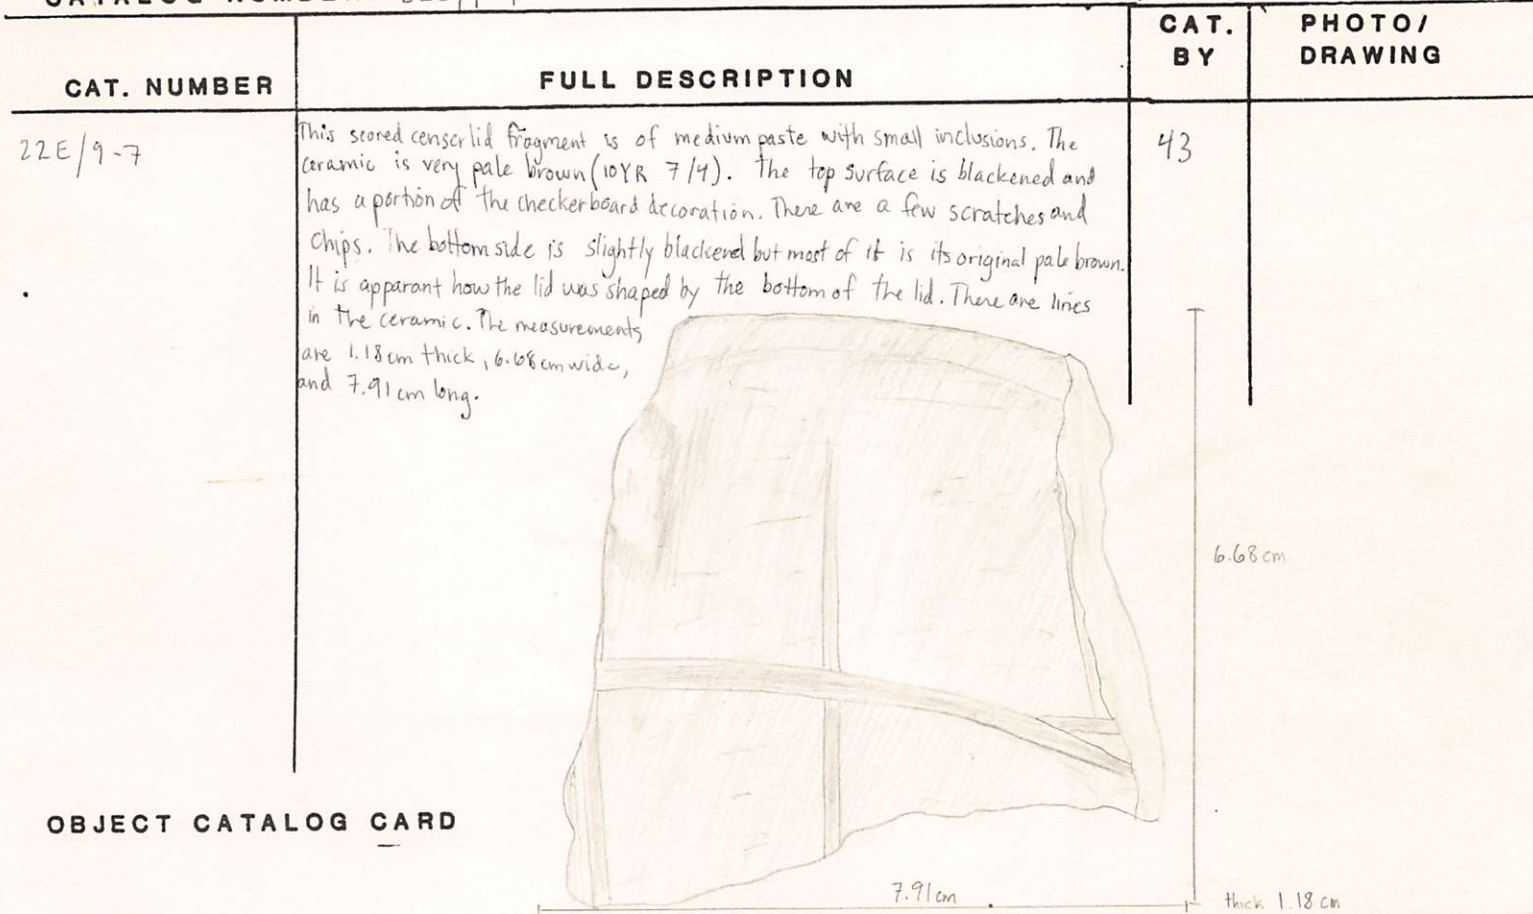 CAT. NUMBER
FULL DESCRIPTION
CAT. BY
PHOTO/
DRAWING
22E/9-7
This scored censer lid fragment is of medium paste with small inclusions. The
ceramic is very pale brown (10YR 7/4). The top surface is blackened and
has a portion of the checkerboard decoration. There are a few scratches and
chips. The bottom side is slightly blackend but most of it is its original pale brown.
It is apparant how the lid was shaped by the bottom of the lid. There are lines
in the ceramic. The measurements
are 1.18 cm thick, 6.68 cm wide,
and 7.91 cm long.
43
6.68 cm
7.91 cm
thick 1.18 cm
OBJECT CATALOG CARD